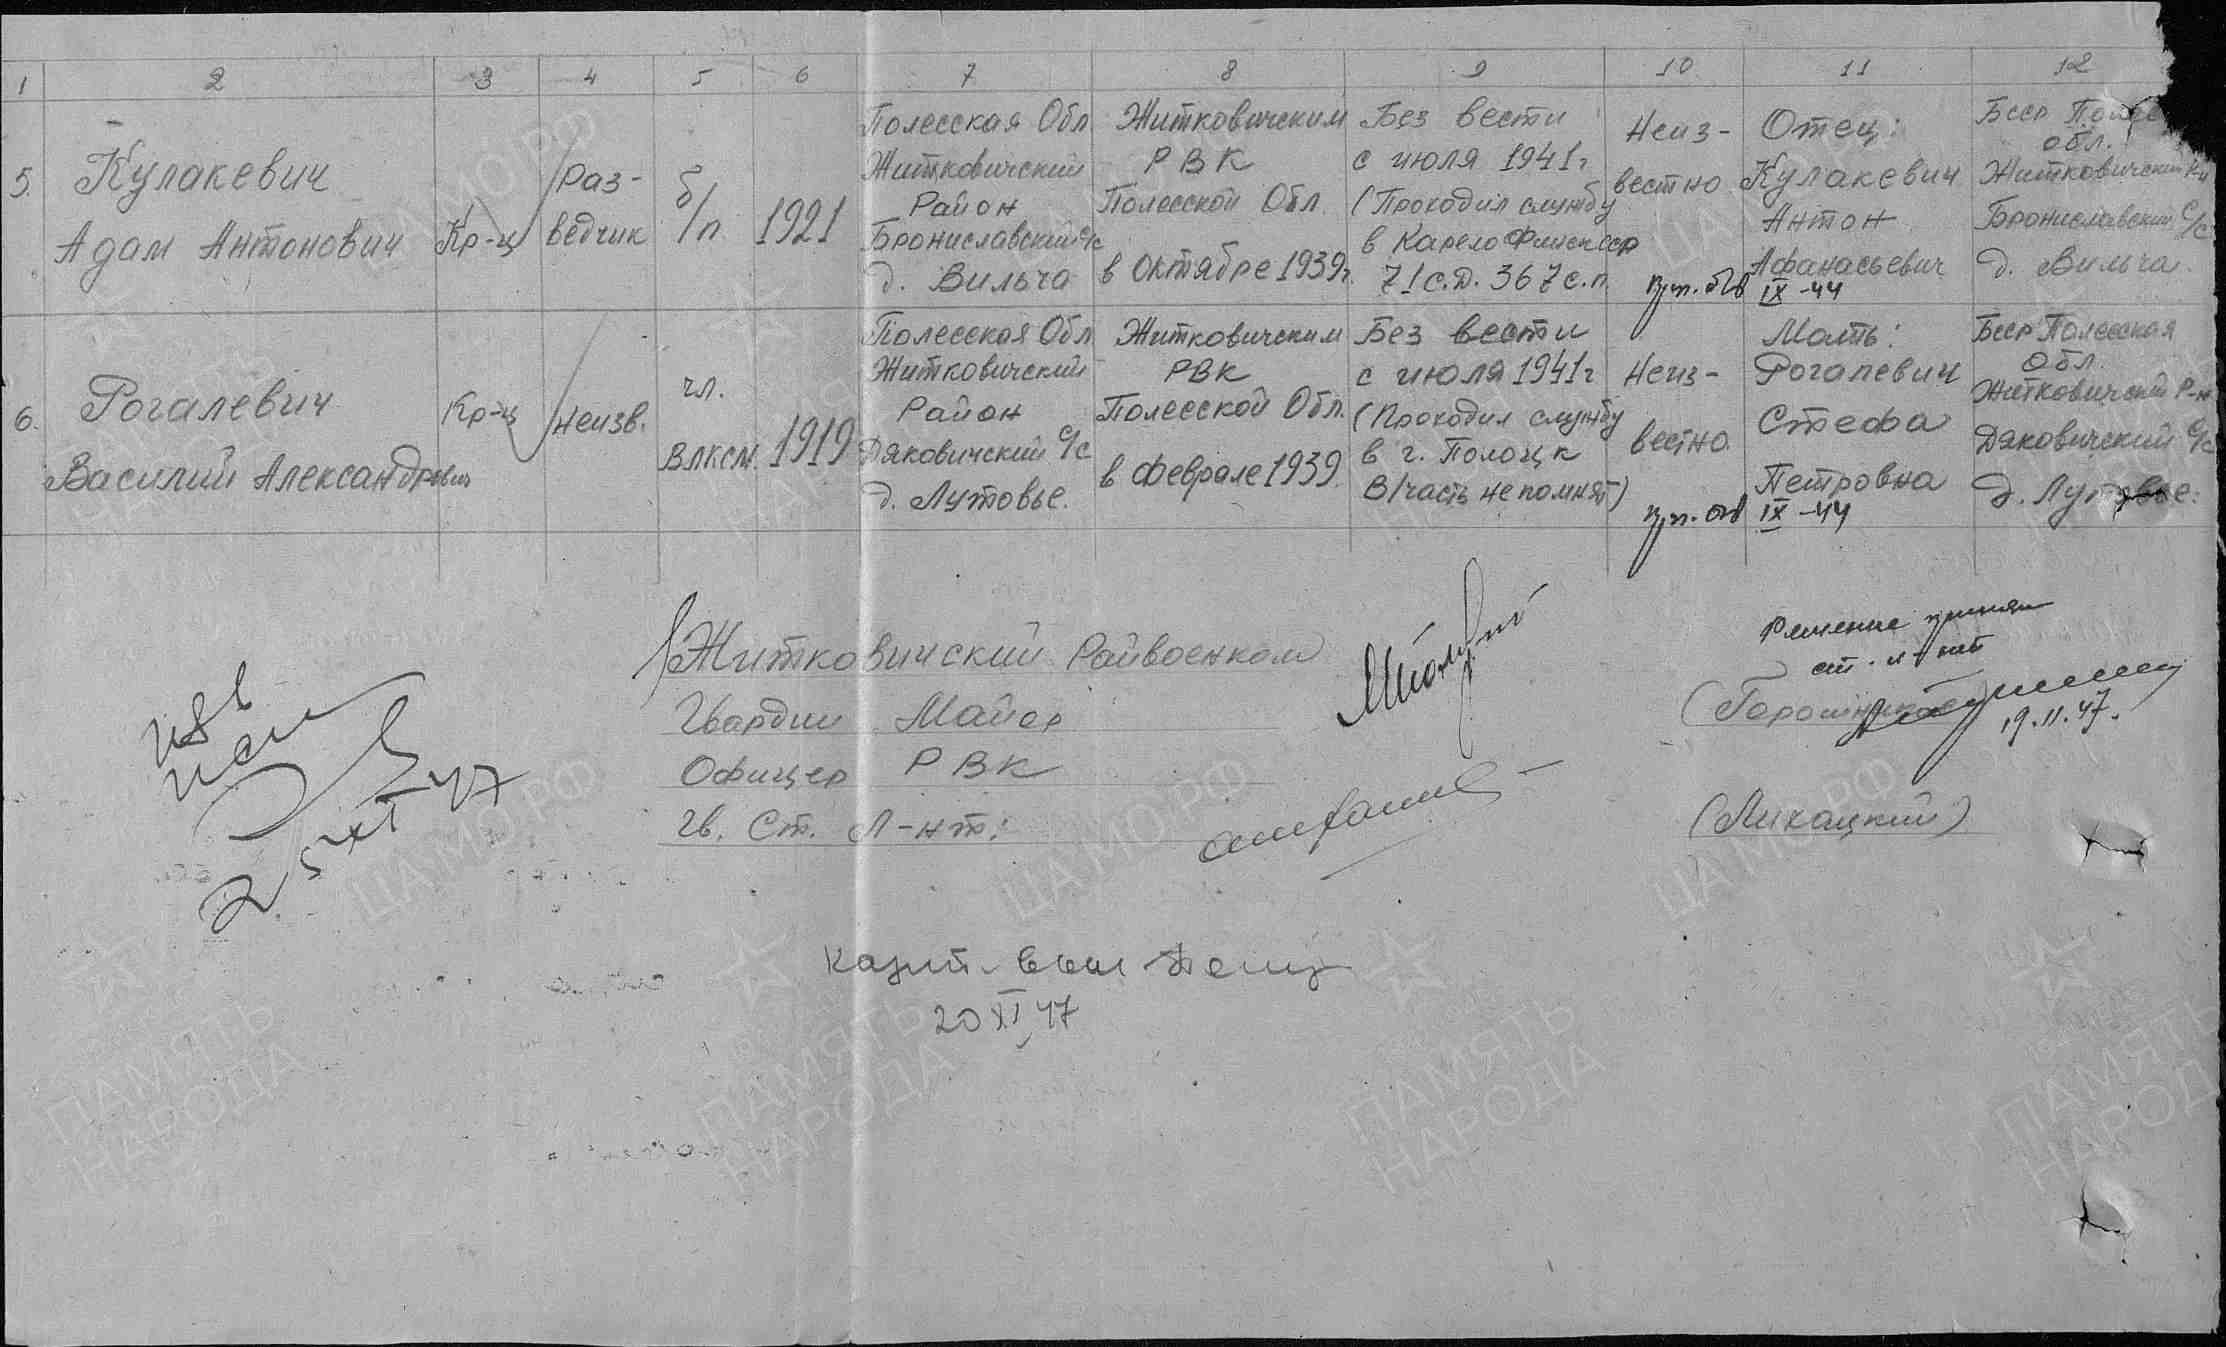 1 2 3 4 5 6 7 8 9 10 11 12
5.
Кулакевич
Адам Антонович
Кр-ц
Раз-
ведчик
б/п
1921
Полесская Обл
Житковичский
Район
Брониславский с/с
д. Вильча
Житковичским
РВК
Полесской Обл.
в Октябре 1939г.
Без вести
с июля 1941г
(Проходил службу
в КарелоФинсксср
71 с.д. 367 с.п.
Неиз-
вестно
Отец:
Кулакевич
Антон
Афанасьевич
IX-44
Бсср
обл.
Житковичский
Брониславский с/с
д. Вильча.
6.
Рогалевич
Василий Александрович
Кр-ц
Неизв.
чл.
ВЛКСМ.
1919
Полесская Обл
Житковичский
Район
Дяковичский с/с
д. Лутовье.
Житковичским
РВК
Полесской Обл.
в феврале 1939.
Без вести
с июля 1941г
(Проходил службу
в г. Полоцк
В/часть не помнят)
Неиз-
вестно.
Мать:
Рогалевич
Стефа
Петровна
IX-44
Бсср Полесская
Обл.
Житковичский Р-н
Дяковичский с/с
д. Лутовье.
Житковичский Райвоенком
Гвардии Майор
Офицер РВК
Гв. Ст. Л-нт:
Решение принял
ст. л-нт
19.11.47.
(Ликацкий)
25 XI 47
20 XI 47
ЦАМО.РФ
ПАМЯТЬ
НАРОДА